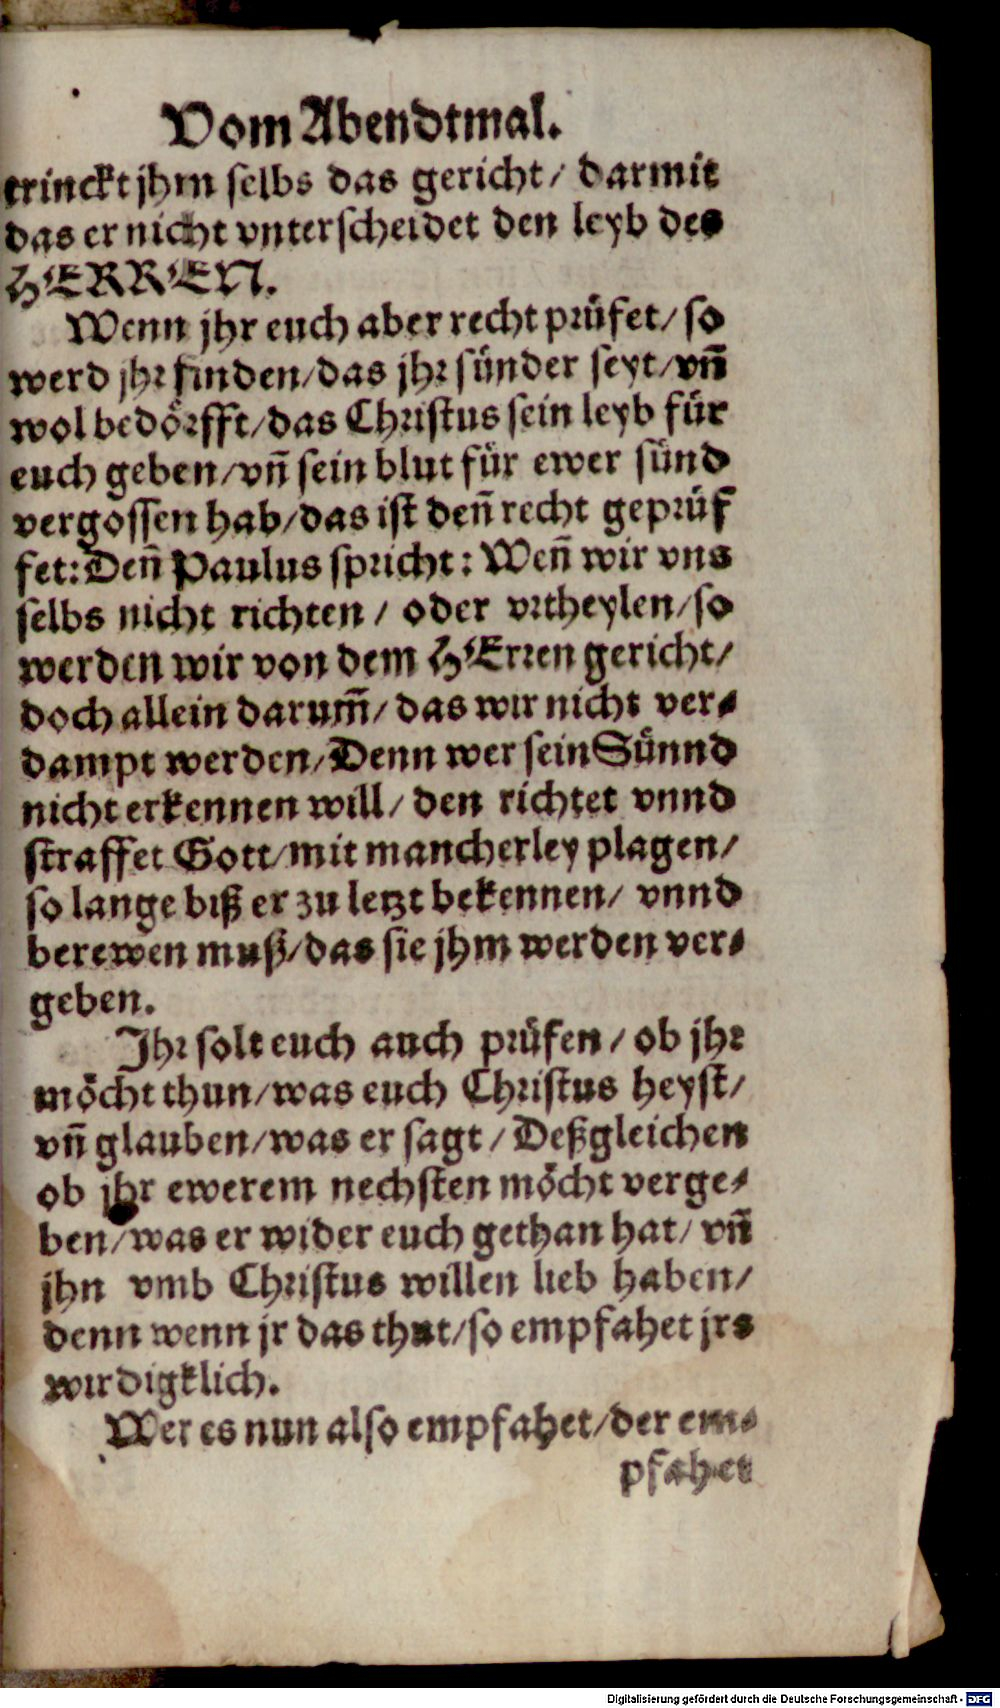 Vom Abendtmal.
trinckt jhm selbs das gericht/ darmit
das er nicht vnterscheidet den leyb des
HERREN.
Wenn jhr euch aber recht prüfet/ so
werd jhr finden/das jhr sünder seyt/vñ
wol bedörfft/das Christus sein leyb für
euch geben/vñ sein blut für ewer sünd
vergossen hab/das ist deñ recht geprüf
fet: Deñ Paulus spricht: Weñ wir vns
selbs nicht richten/ oder vrtheylen/so
werden wir von dem HErren gericht/
doch allein darum̃/das wir nicht ver⸗
dampt werden/Denn wer sein Sünnd
nicht erkennen will/ den richtet vnnd
straffet Gott/mit mancherley plagen/
so lange biß er zu letzt bekennen/ vnnd
berewen muß/das sie jhm werden ver⸗
geben.
Jhr solt euch auch prüfen/ ob jhr
möcht thun/was euch Christus heyst/
vñ glauben/was er sagt/ Deßgleichen
ob jhr ewerem nechsten möcht verge⸗
ben/was er wider euch gethan hat/ vñ
jhn vmb Christus willen lieb haben/
denn wenn jr das thut/so empfahet jrs
wirdigklich.
Wer es nun also empfahet/der em⸗
pfahet
Digitalisierung gefördert durch die Deutsche Forschungsgemeinschaft - DFG